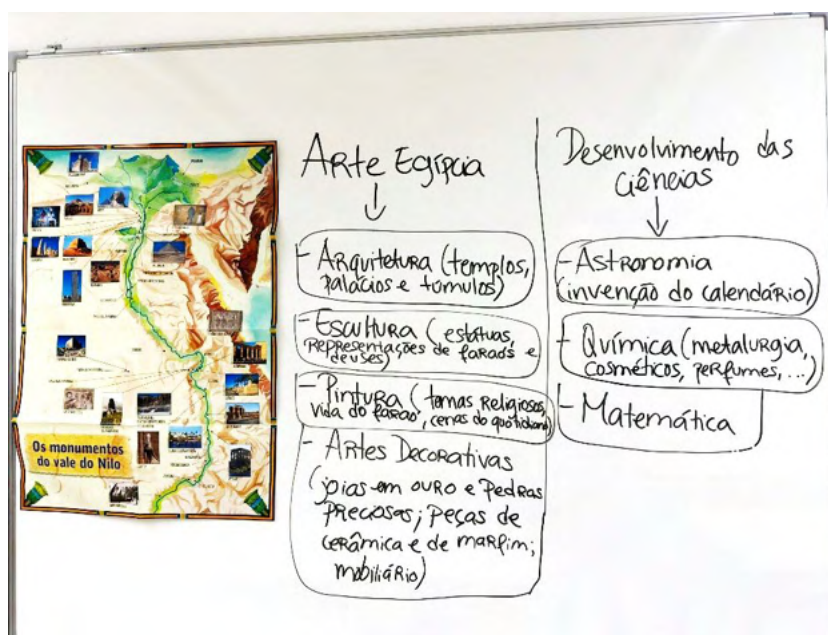 Os monumentos
do vale do Nilo
Arte Egípcia
- Arquitetura (templos,
palácios e túmulos)
- Escultura (estátuas,
representações de faraós e
deuses)
- Pintura (temas religiosos,
vida do faraó, cenas do quotidiano)
- Artes Decorativas
(joias em ouro e pedras
preciosas; peças de
cerâmica e de marfim;
mobiliário)
Desenvolvimento das
Ciências
- Astronomia
(invenção do calendário)
- Química (metalurgia,
cosméticos, perfumes, ...)
- Matemática